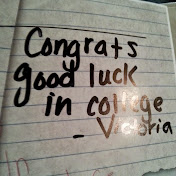 Congrats
good luck
in college
- Victoria